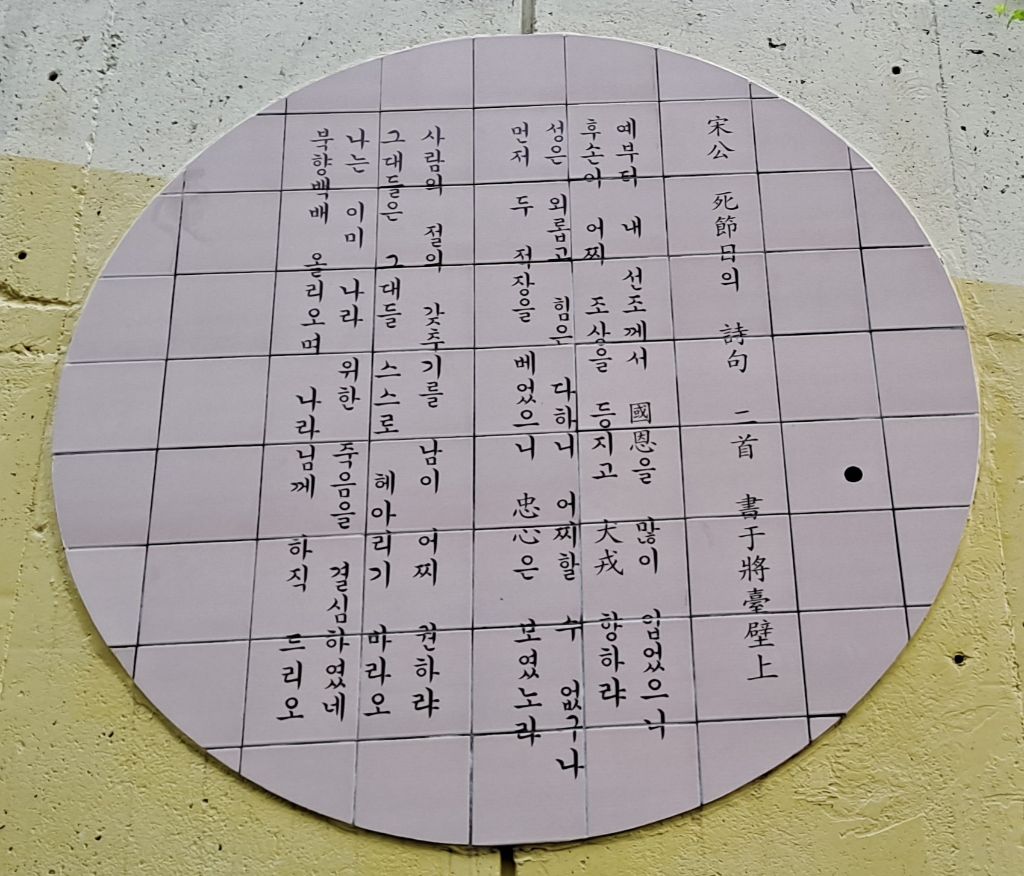 宋公 死節日의 詩句 二首 書于將臺壁上
예부터 내 선조께서 國恩을 많이 입었으니
후손이 어찌 조상을 등지고 犬戎 항하랴
성은 외롭고 힘은 다하니 어찌할 수 없구나
먼저 두 적장을 베었으니 忠心은 보였노라
사람의 절의 갖추기를 남이 어찌 권하랴
그대들은 그대들 스스로 헤아리기 바라오
나는 이미 나라 위한 죽음을 결심하였네
북향백배 올리오며 나라님께 하직 드리오